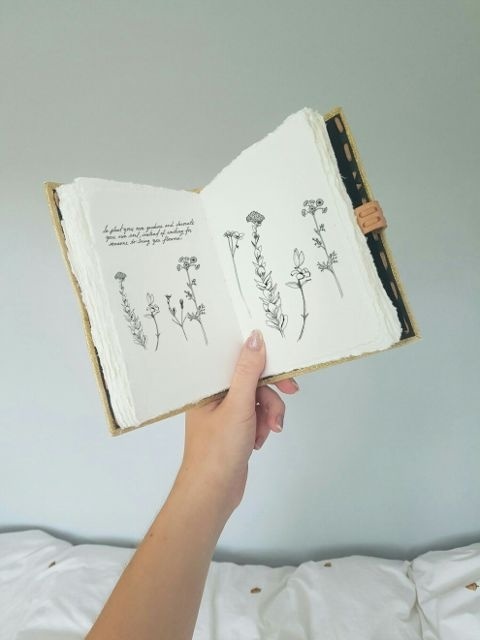 So plant your own gardens and decorate
your own soul, instead of waiting for
someone to bring you flowers.